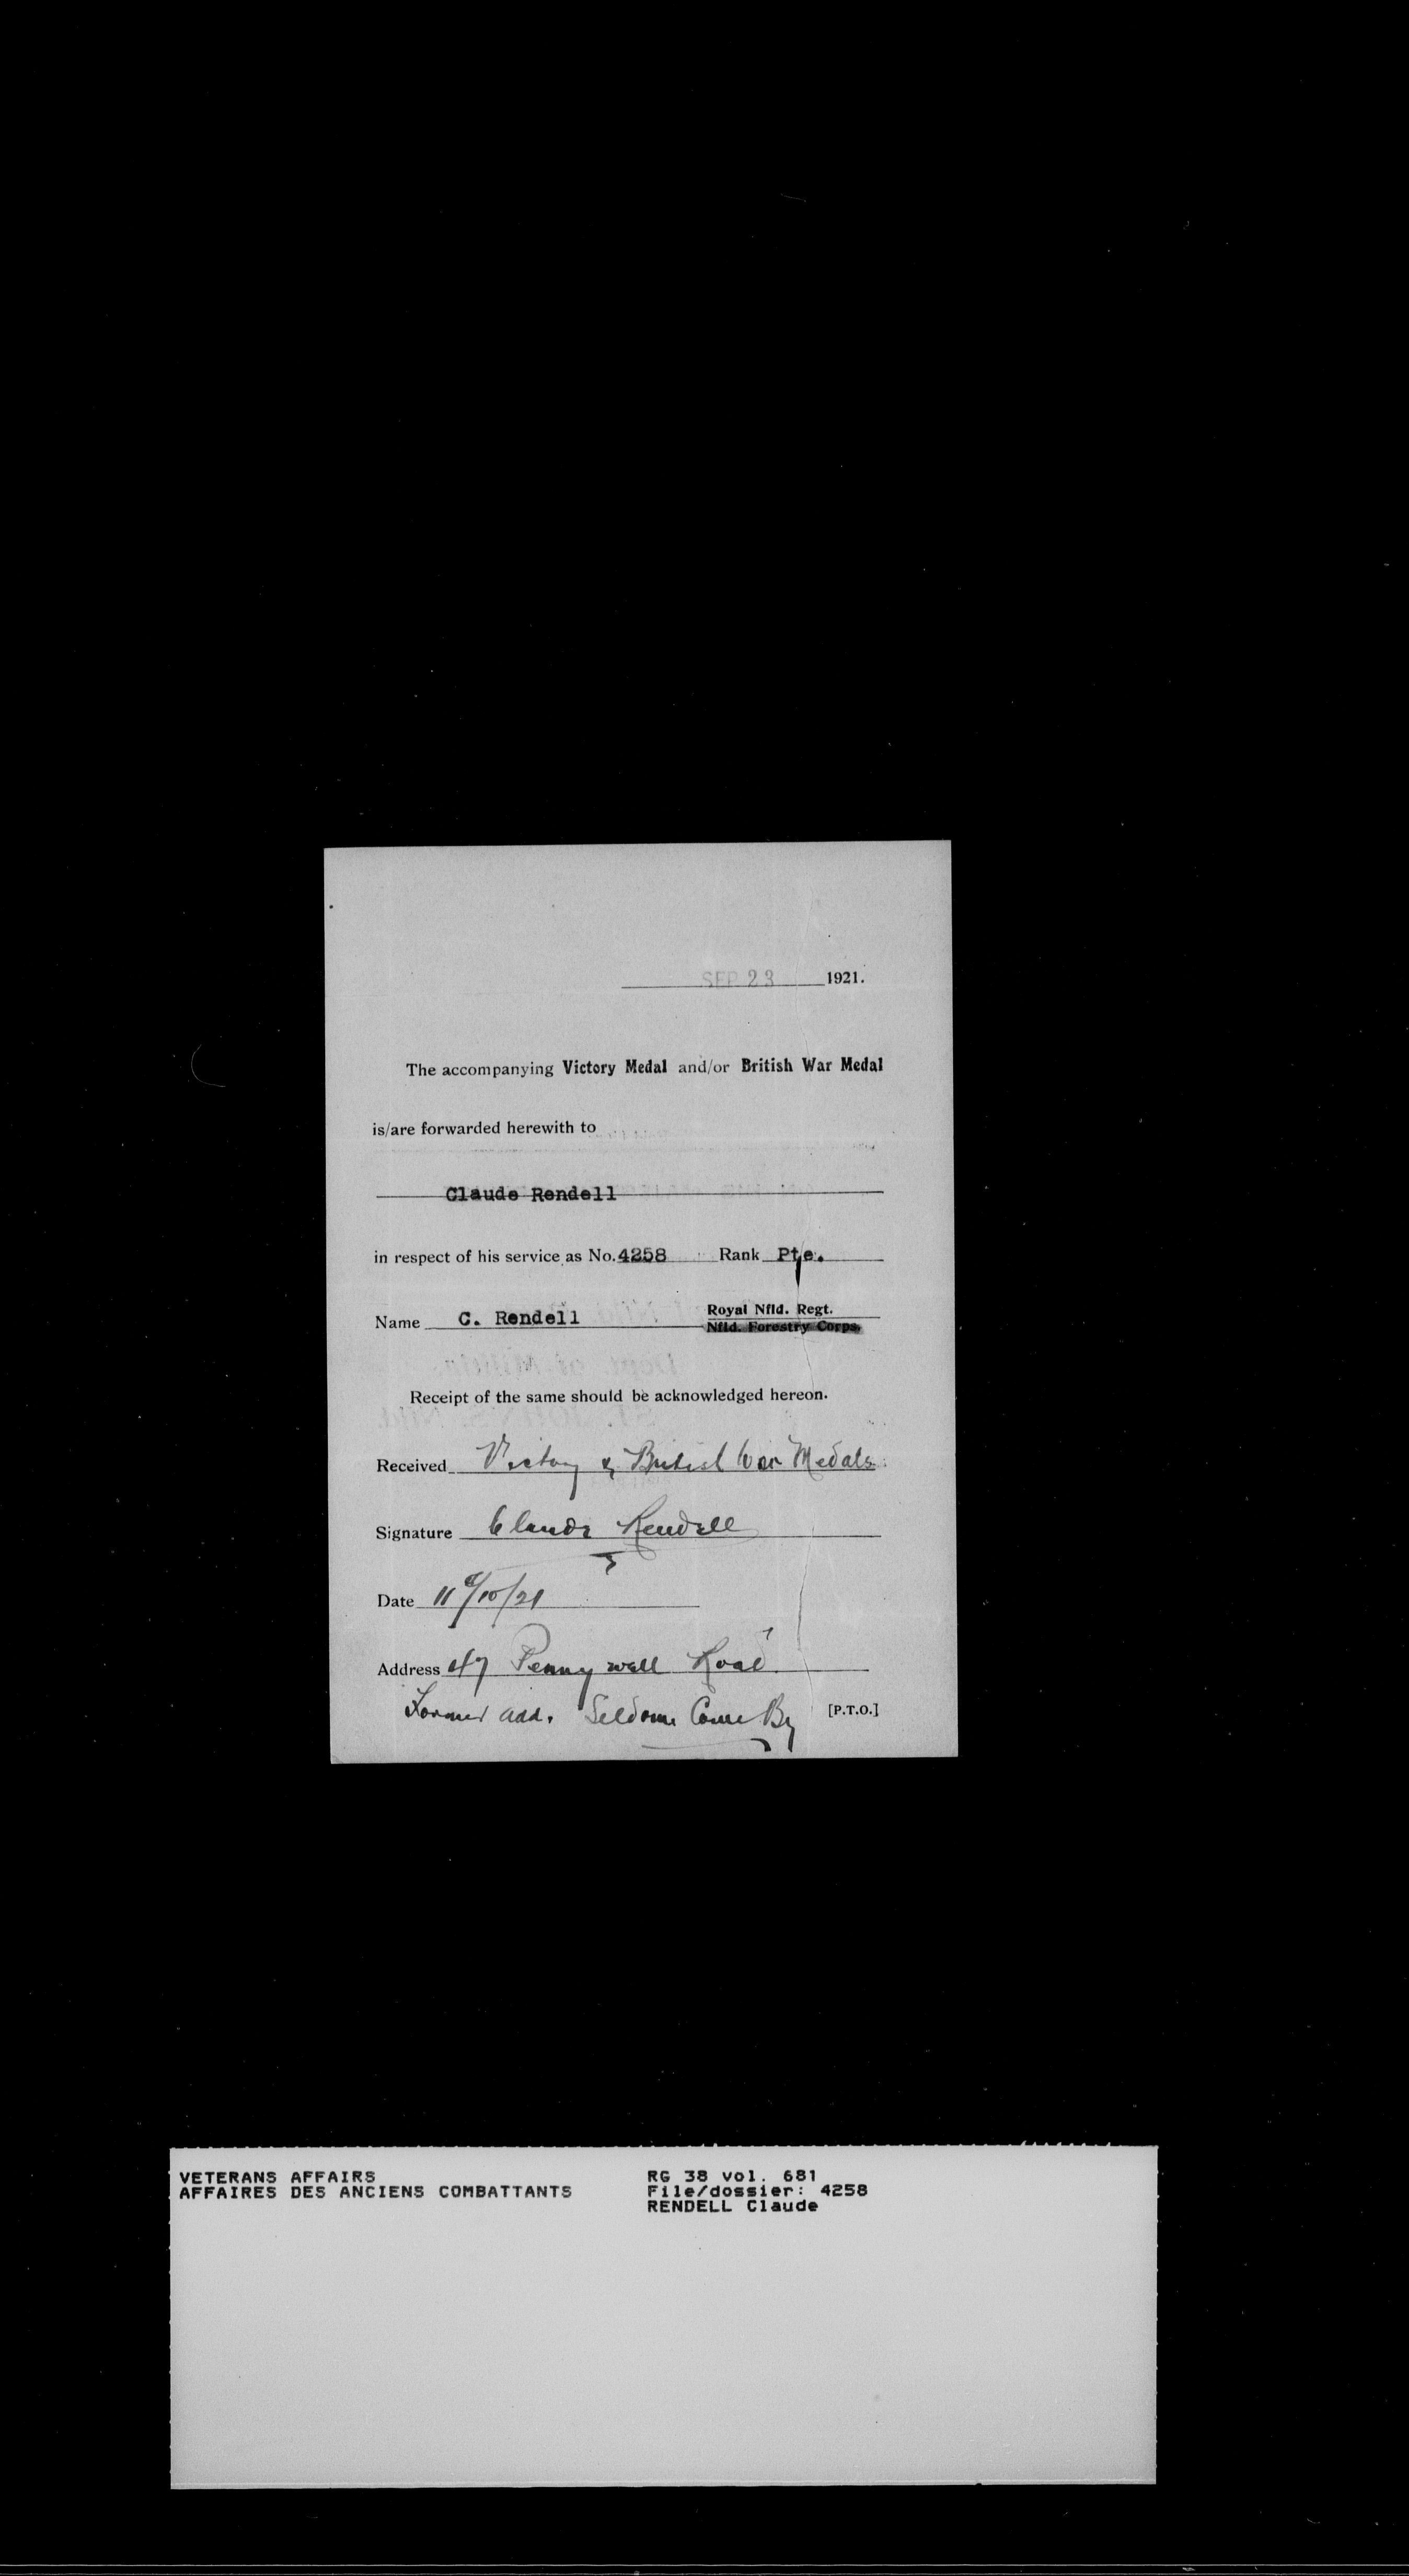 SEP 23 1921.
The accompanying Victory Medal and/or British War Medal
is/are forwarded herewith to
Claude Rendell
in respect of his service as No. 4258 Rank Pte.
Name C. Rendell Royal Nfld. Regt.
Nfld. Forestry Corps.
Receipt of the same should be acknowledged hereon.
Received Victory & British War Medals
Signature Claude Rendell
Date 11/10/21
Address 47 Pennywell Road
Former add. Seldom Come By [P.T.O.]
VETERANS AFFAIRS RG 38 vol. 681
AFFAIRES DES ANCIENS COMBATTANTS File/dossier: 4258
RENDELL Claude